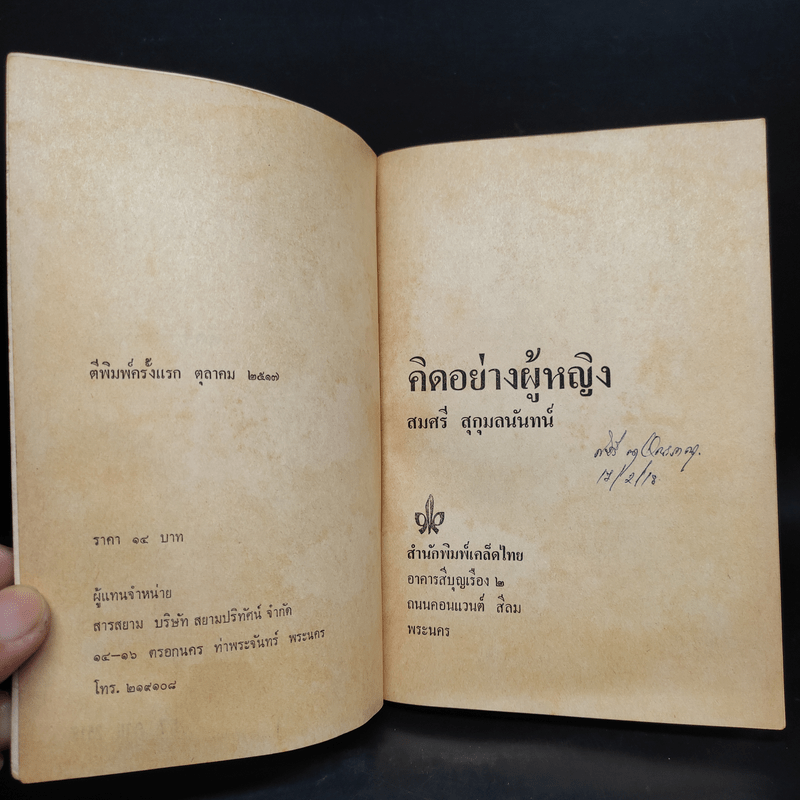 ตีพิมพ์ครั้งแรก ตุลาคม ๒๕๑๗
ราคา ๑๔ บาท
ผู้แทนจำหน่าย
สารสยาม บริษัท สยามปริทัศน์ จำกัด
๑๔–๑๖ ตรอกนคร ท่าพระจันทร์ พระนคร
โทร. ๒๑๙๑๐๘
คิดอย่างผู้หญิง
สมศรี สุกุมลนันทน์
สำนักพิมพ์เคล็ดไทย
อาคารสีบุญเรือง ๒
ถนนคอนแวนต์ สีลม
พระนคร